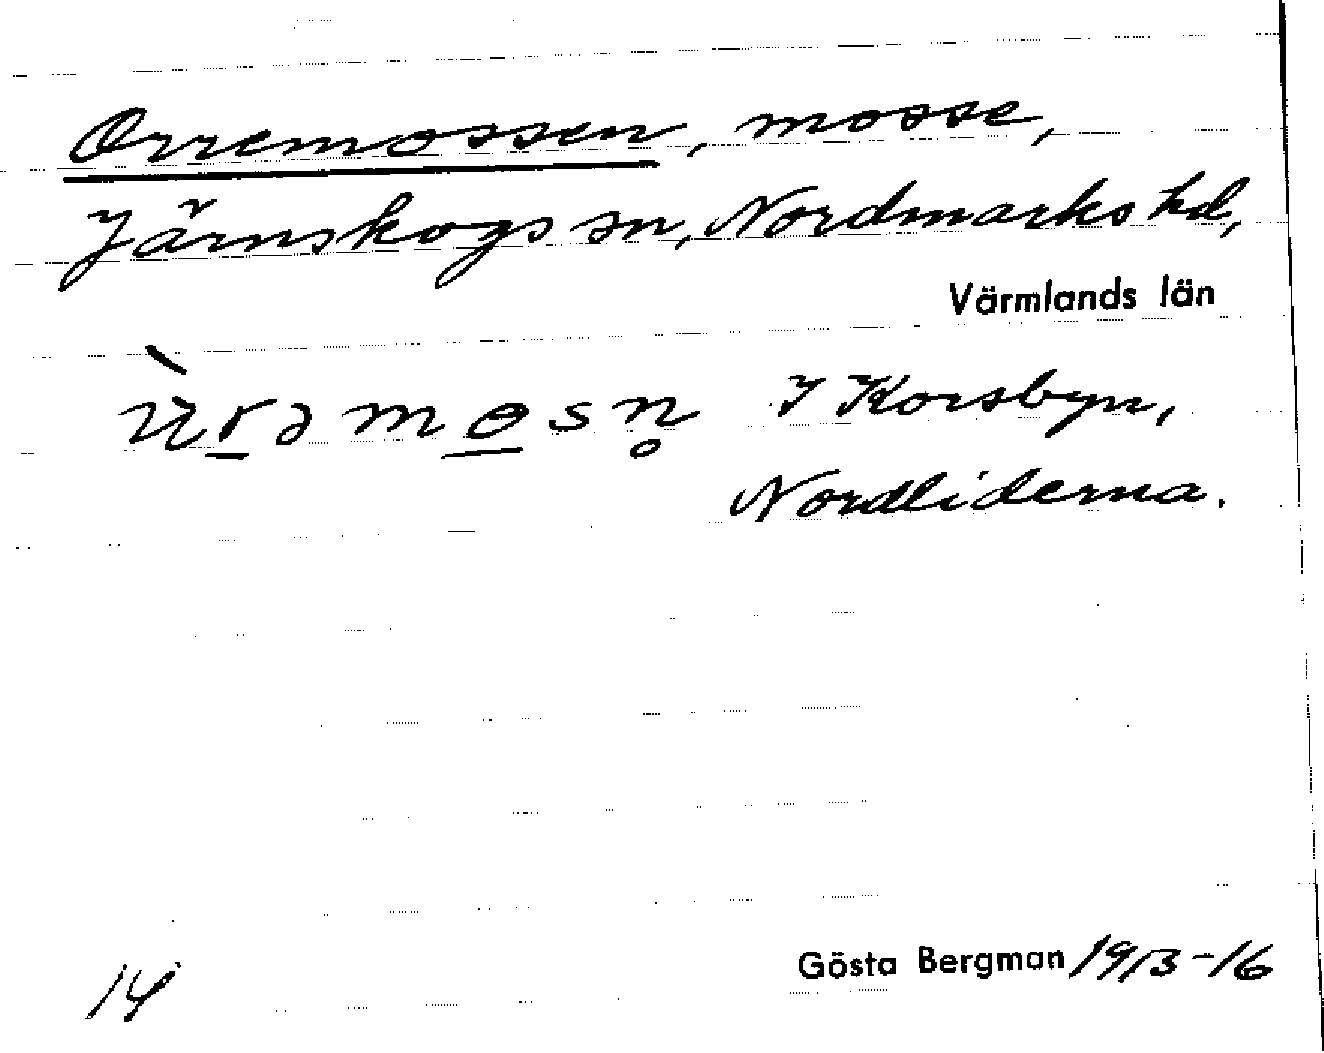 Orremossen, mosse,
Järnskogs sn, Nordmarks hd,
Värmlands län
I Korsbyn,
Nordliderna.
Gösta Bergman 1913-16
14